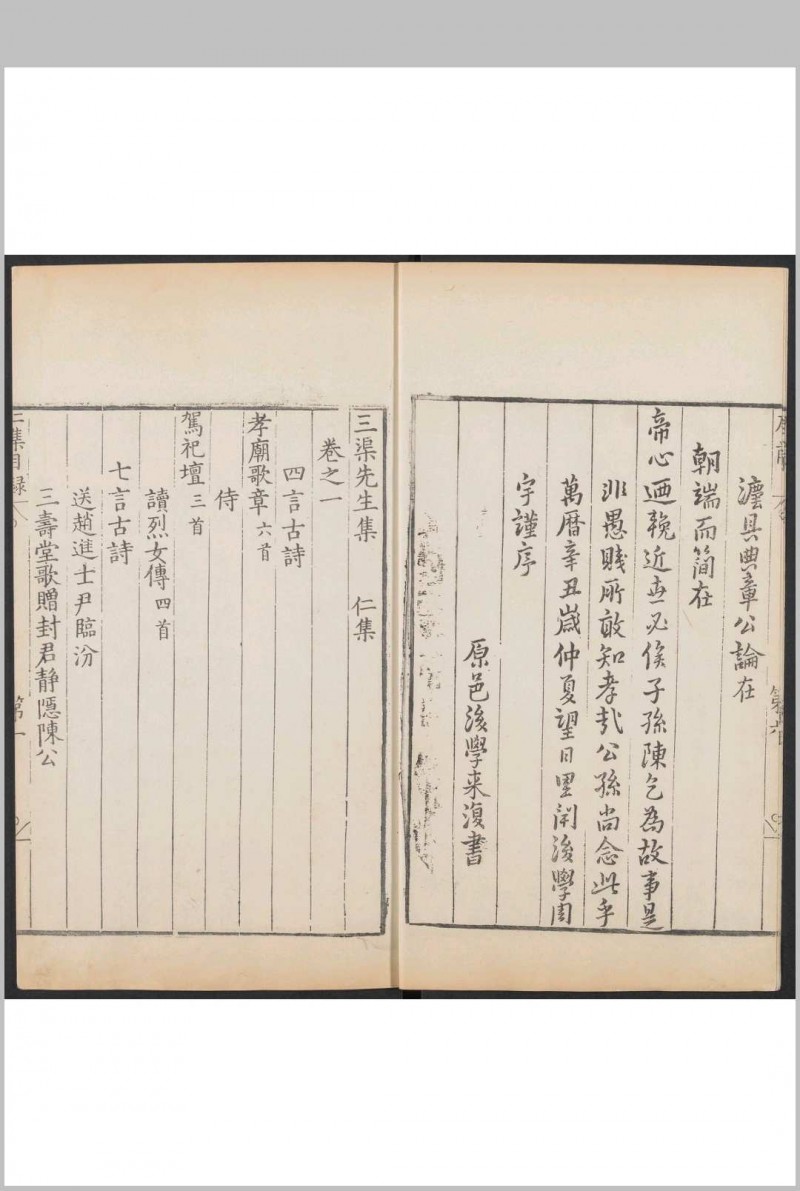 瀍具典章公論在
朝端而簡在
帝心廼輓近直必俟子孫陳乞為故事是
非愚賤所敢知孝哉公孫尚念此乎
萬曆辛丑歲仲夏望日里閈後學周
宇謹序
原邑後學来復書
三渠先生集 仁集
卷之一
四言古詩
孝廟歌章 六首
侍
駕祀壇 三首
讀烈女傳 四首
七言古詩
送趙進士尹臨汾
三壽堂歌贈封君靜隱陳公
仁集目録 第一